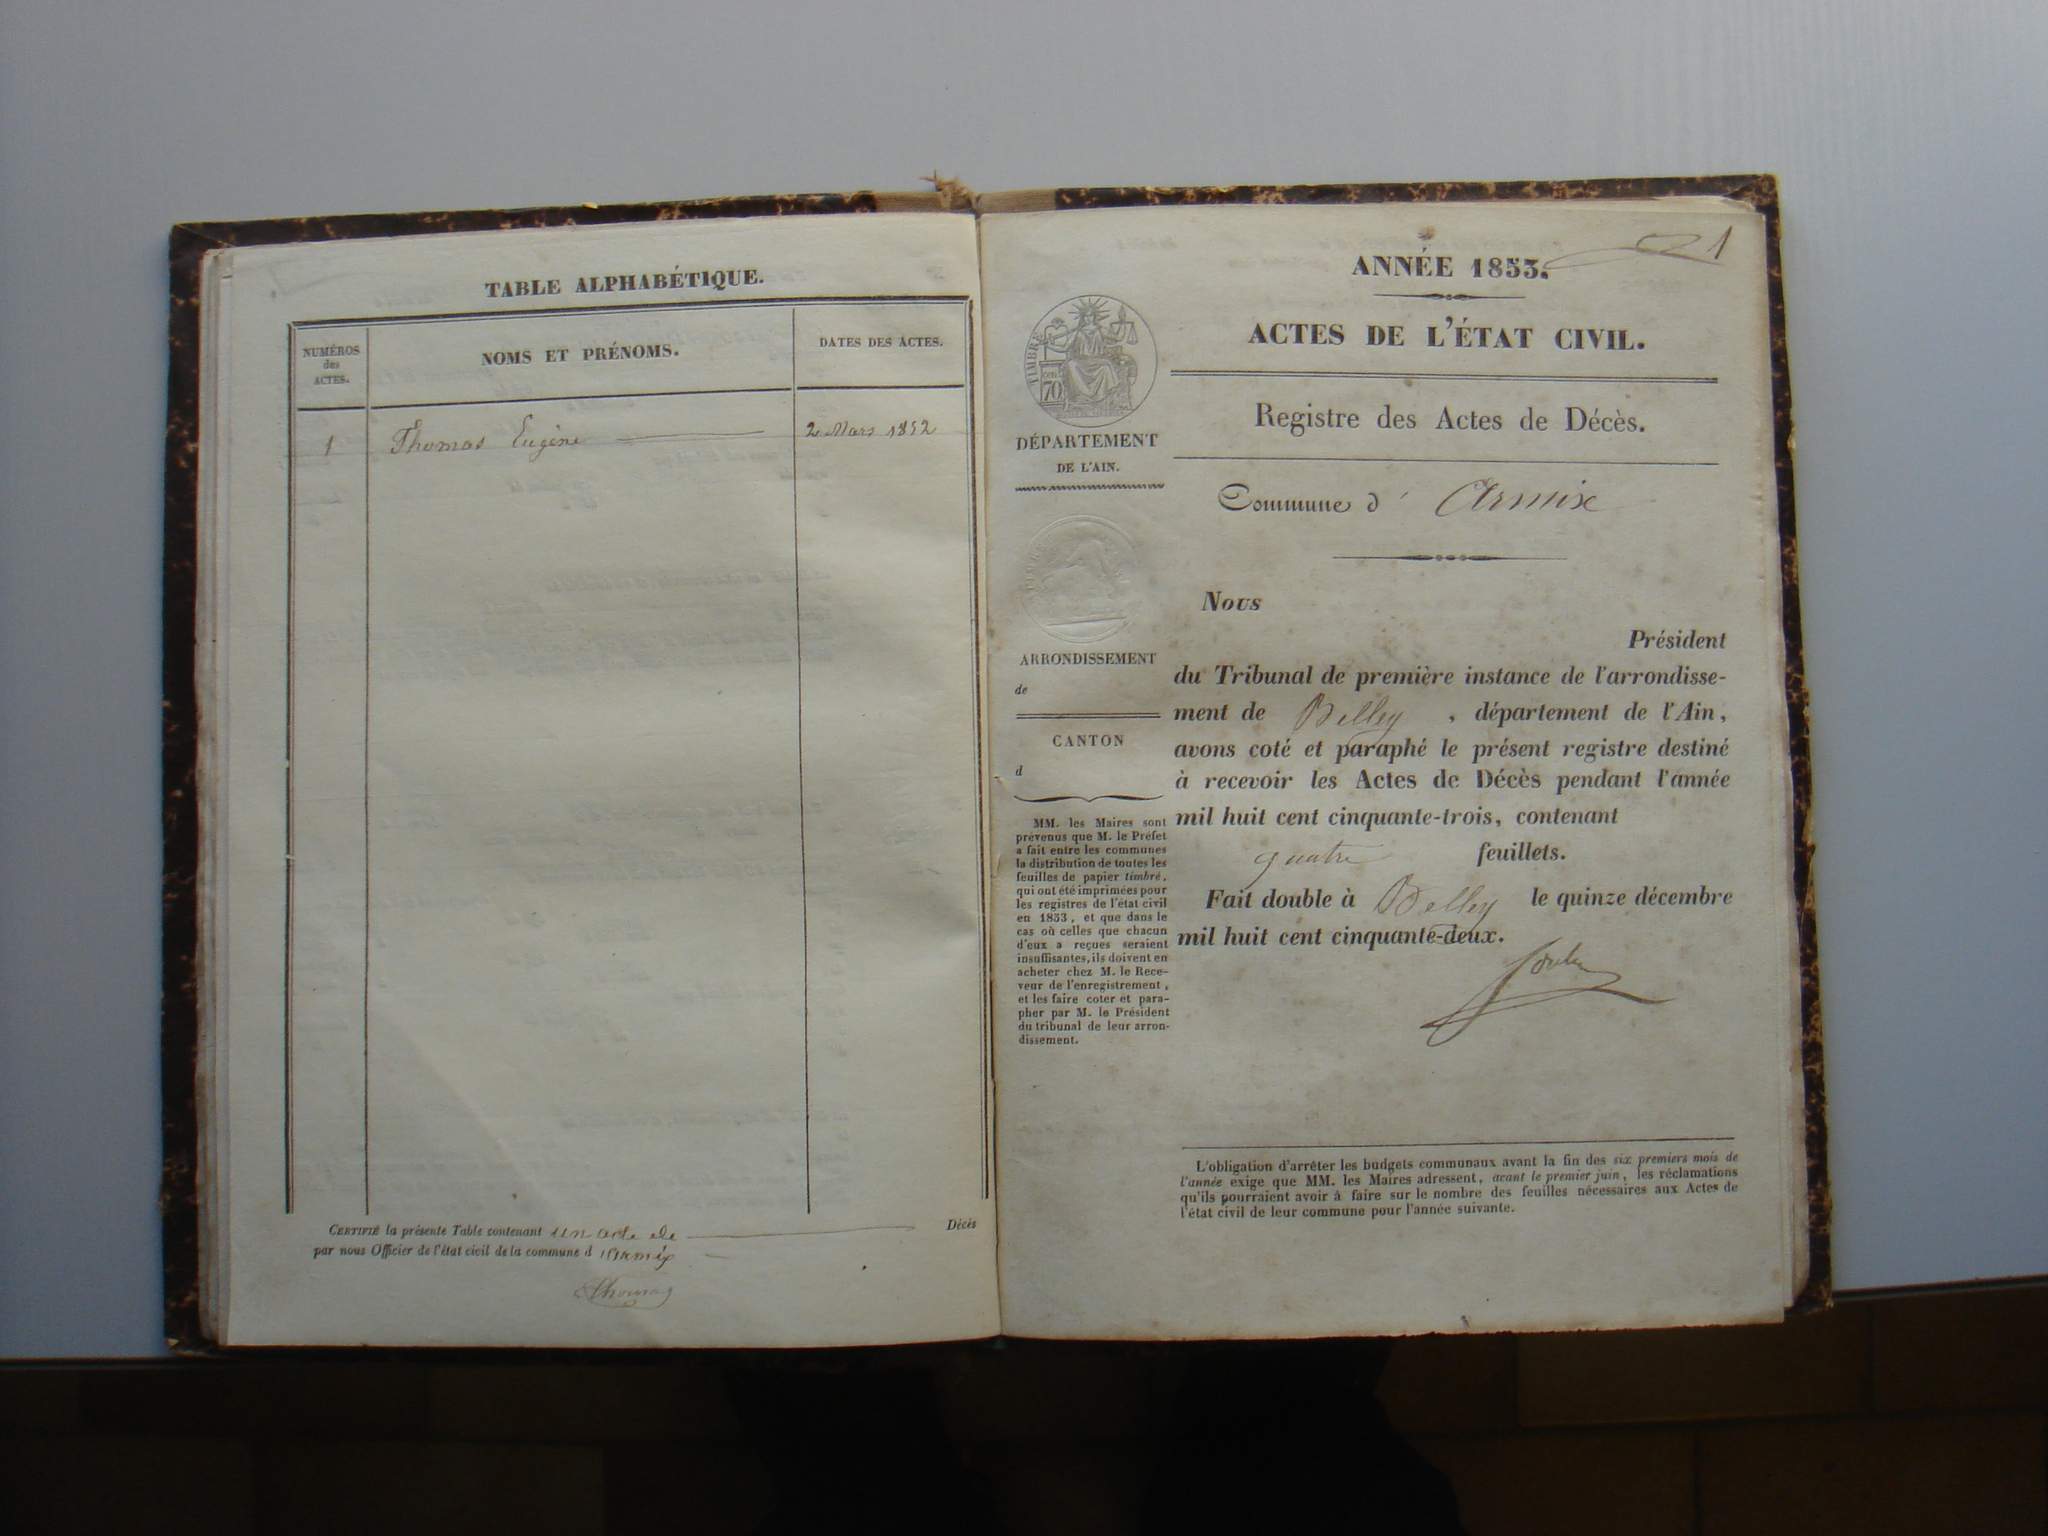 TABLE ALPHABÉTIQUE.
NUMÉROS
des
ACTES.
NOMS ET PRÉNOMS.
DATES DES ACTES.
1 Thomas Eugène 2 Mars 1852
CERTIFIÉ la présente Table contenant un acte de Décès
par nous Officier de l'état civil de la commune d'Armix
Thomas
1
ANNÉE 1853.
ACTES DE L'ÉTAT CIVIL.
Registre des Actes de Décès.
Commune d' Armix
TIMBRE
70
DÉPARTEMENT
DE L'AIN.
ARRONDISSEMENT
de
CANTON
d
MM. les Maires sont
prévenus que M. le Préfet
a fait entre les communes
la distribution de toutes les
feuilles de papier timbré,
qui ont été imprimées pour
les registres de l'état civil
en 1853, et que dans le
cas où celles que chacun
d'eux a reçues seraient
insuffisantes, ils doivent en
acheter chez M. le Rece-
veur de l'enregistrement,
et les faire coter et para-
pher par M. le Président
du tribunal de leur arron-
dissement.
Nous
Président
du Tribunal de première instance de l'arrondisse-
ment de Belley, département de l'Ain,
avons coté et paraphé le présent registre destiné
à recevoir les Actes de Décès pendant l'année
mil huit cent cinquante-trois, contenant
quatre feuillets.
Fait double à Belley le quinze décembre
mil huit cent cinquante-deux.
L'obligation d'arrêter les budgets communaux avant la fin des six premiers mois de
l'année exige que MM. les Maires adressent, avant le premier juin, les réclamations
qu'ils pourraient avoir à faire sur le nombre des feuilles nécessaires aux Actes de
l'état civil de leur commune pour l'année suivante.